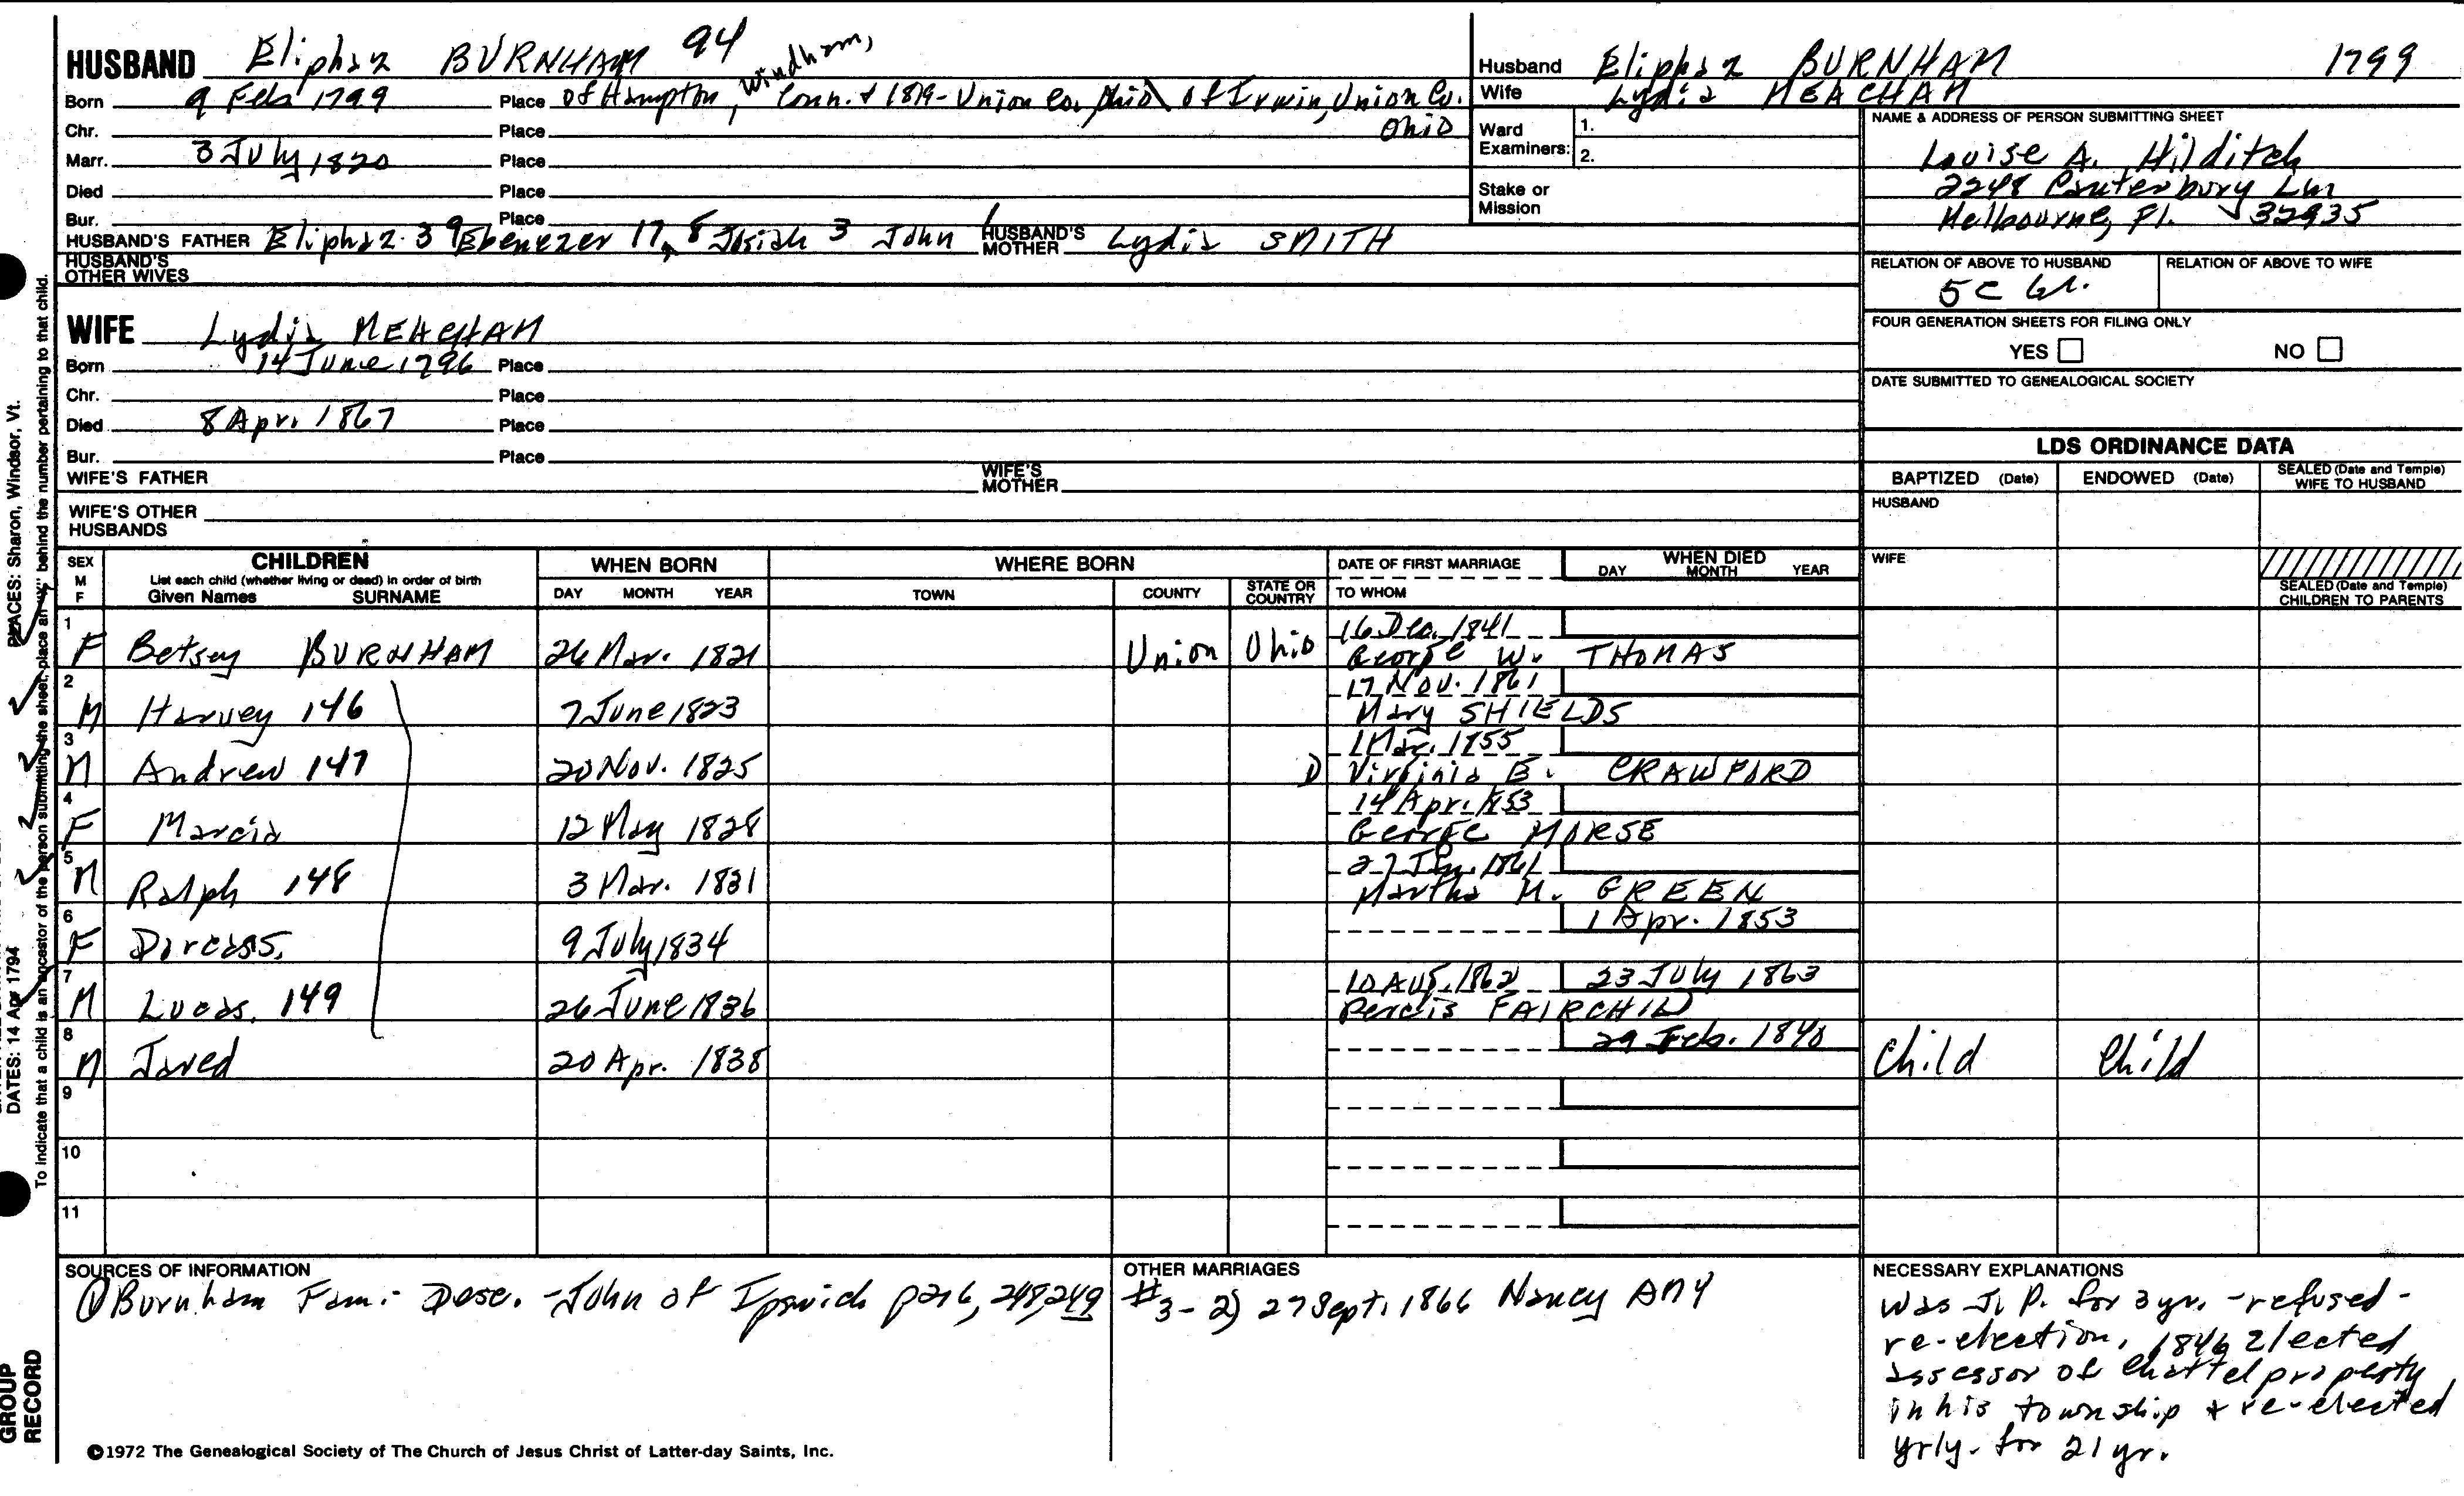 HUSBAND Eliphaz BURNHAM 94
Born 9 Feb 1799 Place of Hampton, Windham, Conn. & 1819 - Union Co. Ohio of Irwin, Union Co. Ohio
Chr. Place
Marr. 3 July 1820 Place
Died Place
Bur. Place
HUSBAND'S FATHER Eliphaz 39 Ebenezer 17, 8 Josiah 3 John 1 HUSBAND'S MOTHER Lydia SMITH
HUSBAND'S OTHER WIVES
WIFE Lydia MEACHAM
Born 14 June 1796 Place
Chr. Place
Died 8 Apr. 1867 Place
Bur. Place
WIFE'S FATHER WIFE'S MOTHER
WIFE'S OTHER HUSBANDS
Husband Eliphaz BURNHAM 1799
Wife Lydia MEACHAM
Ward Examiners: 1.
2.
Stake or Mission
NAME & ADDRESS OF PERSON SUBMITTING SHEET
Louise A. Hilditch
2248 Canterbury Ln
Melbourne, Fl. 32935
RELATION OF ABOVE TO HUSBAND RELATION OF ABOVE TO WIFE
5 C
FOUR GENERATION SHEETS FOR FILING ONLY
YES NO
DATE SUBMITTED TO GENEALOGICAL SOCIETY
LDS ORDINANCE DATA
BAPTIZED (Date) ENDOWED (Date) SEALED (Date and Temple) WIFE TO HUSBAND
HUSBAND
WIFE
SEALED (Date and Temple) CHILDREN TO PARENTS
SEX M F CHILDREN WHEN BORN WHERE BORN DATE OF FIRST MARRIAGE WHEN DIED
List each child (whether living or dead) in order of birth
Given Names SURNAME DAY MONTH YEAR TOWN COUNTY STATE OR COUNTRY TO WHOM DAY MONTH YEAR
1 16 Dec. 1841
F Betsey BURNHAM 26 Mar. 1821 Union Ohio George W. THOMAS
2 17 Nov. 1861
M Harvey 146 7 June 1823 Mary SHIELDS
3 1 Mar. 1855
M Andrew 147 20 Nov. 1825 D Virginia E. CRAWFORD
4 14 Apr. 1853
F Marcia 12 May 1828 George MORSE
5 27 Jan. 1861
M Ralph 148 3 Mar. 1831 Martha M. GREEN
6 1 Apr. 1853
F Dorcass. 9 July 1834
7 10 Aug. 1862 23 July 1863
M Lucas. 149 26 June 1836 Percis FAIRCHILD
8 29 Feb. 1840
M Jared 20 Apr. 1838 Child Child
9
10
11
SOURCES OF INFORMATION
① Burnham Fam. - Desc. - John of Ipswich p 216, 248, 249
OTHER MARRIAGES
#3 - 2) 27 Sept. 1866 Nancy AMY
NECESSARY EXPLANATIONS
Was J. P. for 3 yr. - refused -
re-election. 1846 elected
assessor of Chattel property
in his township & re-elected
yrly. for 21 yr.
©1972 The Genealogical Society of The Church of Jesus Christ of Latter-day Saints, Inc.
PLACES: Sharon, Windsor, Vt.
DATES: 14 Apr 1794
To indicate that a child is an ancestor of the person submitting the sheet, place an "X" behind the number pertaining to that child.
GROUP RECORD